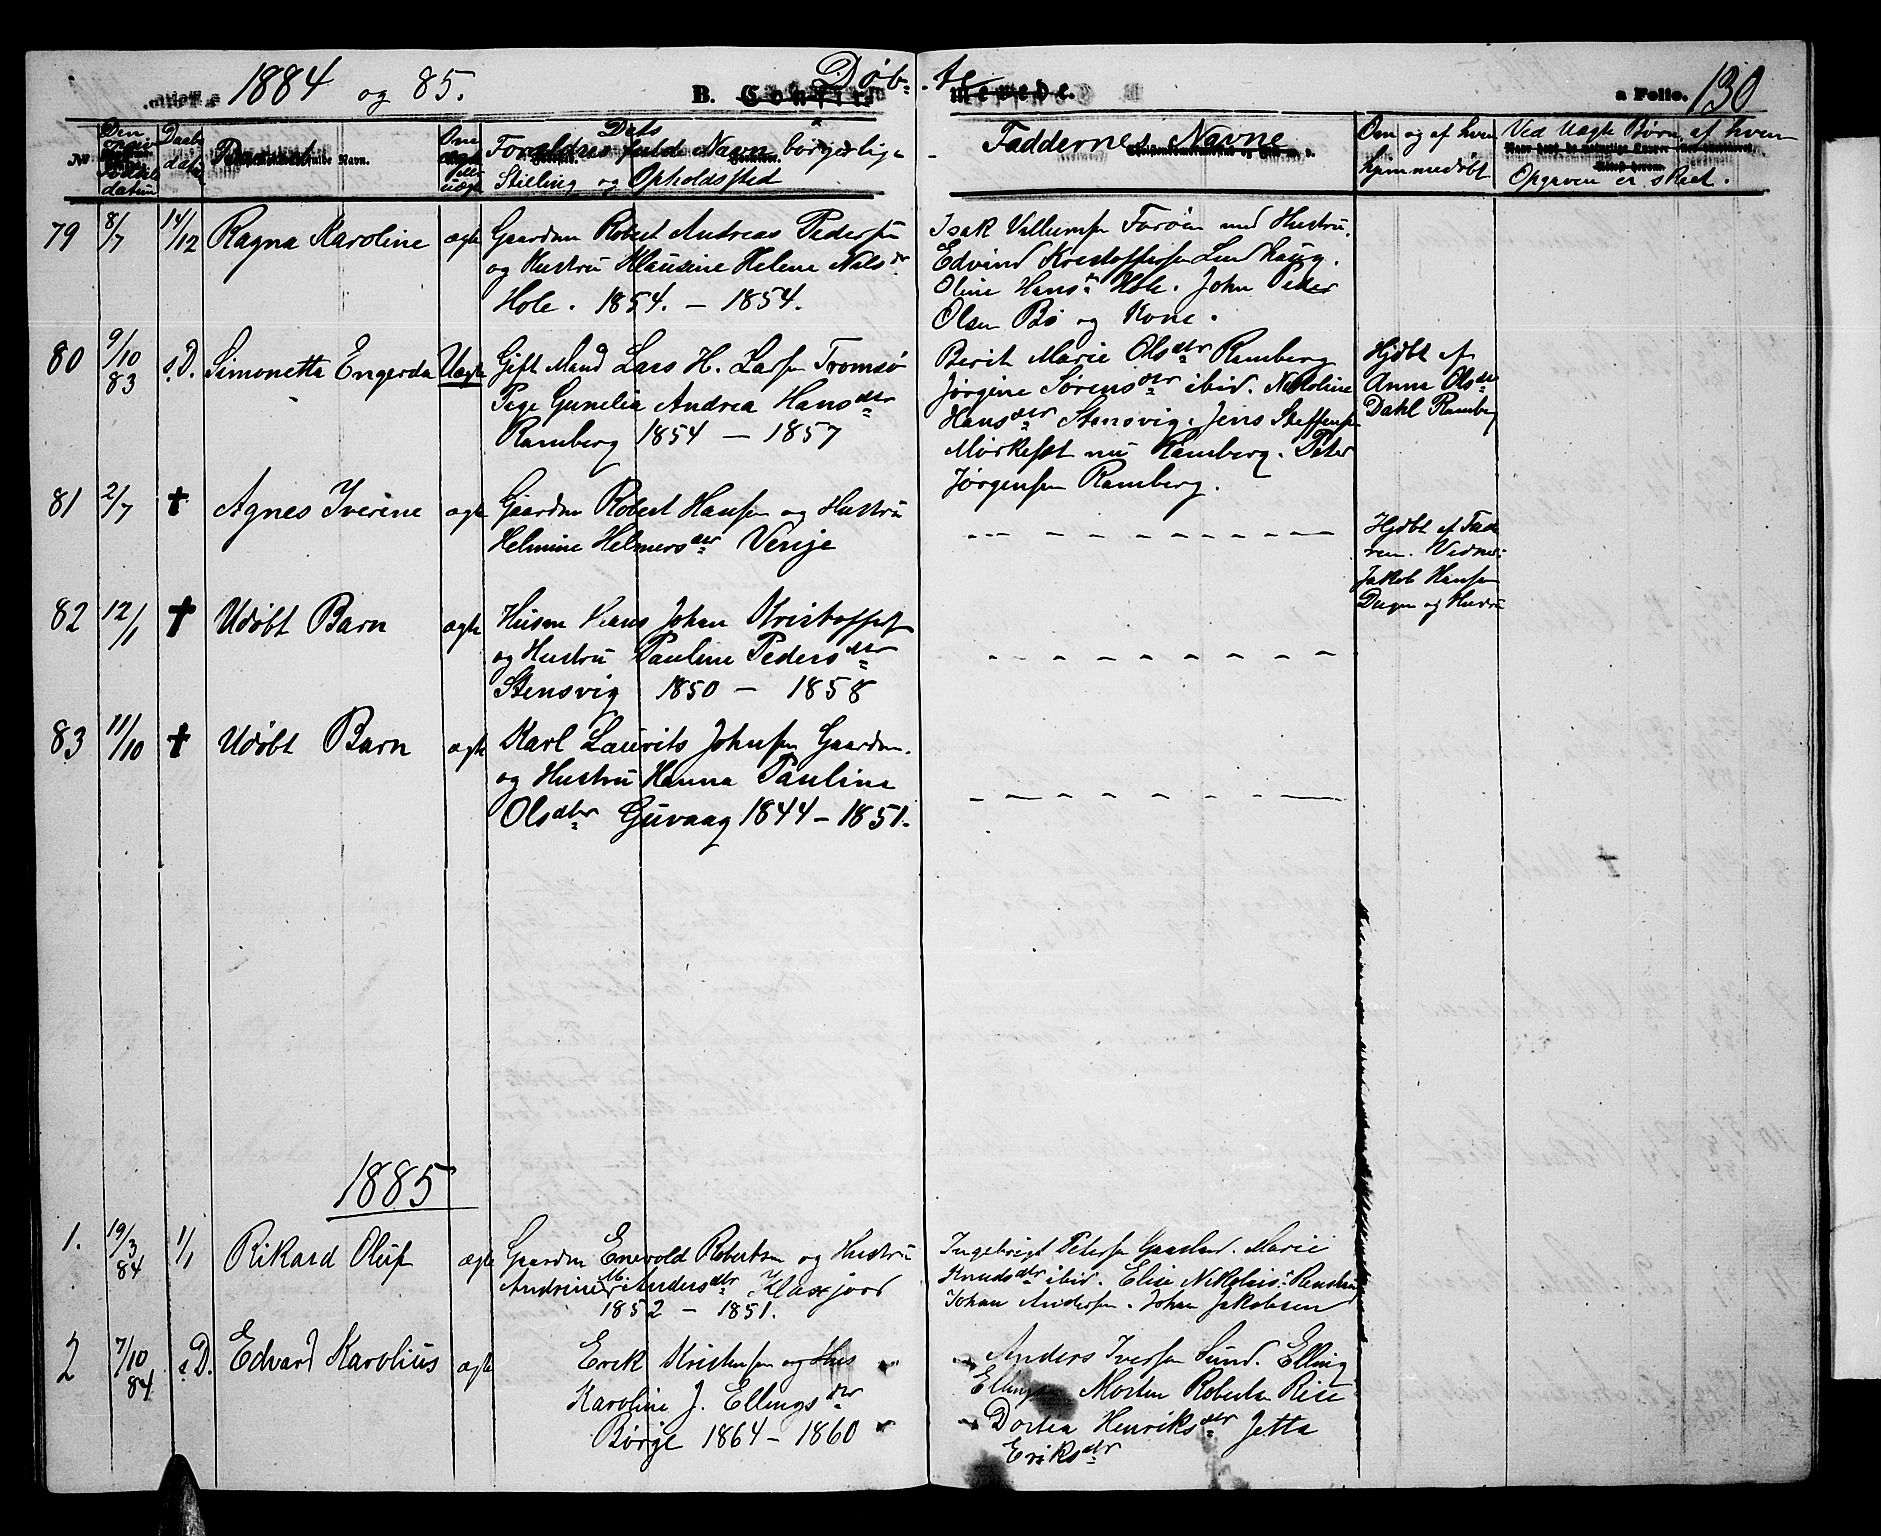 1884 og 85.
B. Døb-te
a Folio. 130
No
Den
datum
Daabs
datum
Barnets fulde Navn.
Om
ægte
eller
uægte
Forældres fulde Navn borgerlige
Stilling og Opholdssted
Faddernes Navne
Om og af hvem
hjemmedøbt
Ved Uægte Børn af hvem
Opgaven er skeet.
79 8/7 14/12 Ragna Karoline ægte Gaardm Robert Andreas Pedersen
og Hustru Klausine Helene Nilsdr
Hole. 1854. - 1854.
Isak Villumsen Farøen med Hustru.
Edvind Kristoffersen Lind haug.
Oline Hansdr Hole. John Peder
Olsen Bø og Kone.
80 9/10 83 s.D. Simonetta Engerda Uægte Gift Mand Lars H. Larsen Tromsø
Pige Gunelia Andrea Hansdtr
Ramberg 1854 - 1857
Berit Marie Olsdtr Ramberg
Jørgine Sørensdtr ibid. Nikoline
Hansdtr Stensvig. Jens Steffensen
nu Ramberg. Peter
Jørgensen Ramberg.
Hjdbt af
Anna Olsdtr
Dahl Ramberg
81 2/7 † Agnes Iverine ægte Gaardm Robert Hansen og Hustru
Helmine Helmersdtr
Hjdbt af Fade
ren. Vidner:
Jakob Hansen
og Hustru
82 12/1 † Udøbt Barn ægte Husm Hans Johan Kristoffersen
og Hustru Pauline Pedersdtr
Stensvig 1850 - 1858
83 11/10 † Udøbt Barn ægte Karl Laurits Johnsen Gaardm.
og Hustru Hanna Pauline
Olsdtr Guvaag 1844 - 1851.
1885
1. 19/3 84 1/1 Rikard Oluf ægte Gaardm Enevold Robertsen og Hustru
Andrine M. Andersdtr Klaxjord
1852 - 1851.
Ingebrigt Petersen Gaasland. Marie
Knudsdtr ibid. Elise
Johan Andersen. Johan Jakobsen
2 7/10 84 s.D. Edvard Karolius ægte Erik Kristensen og Hus
Karoline J. Ellingsdtr
Børge 1864 - 1860
Anders Iversen Sund. Elling
Morten Robertsen Rise
Dortea Henriksdtr Jetta
Eriksdtr